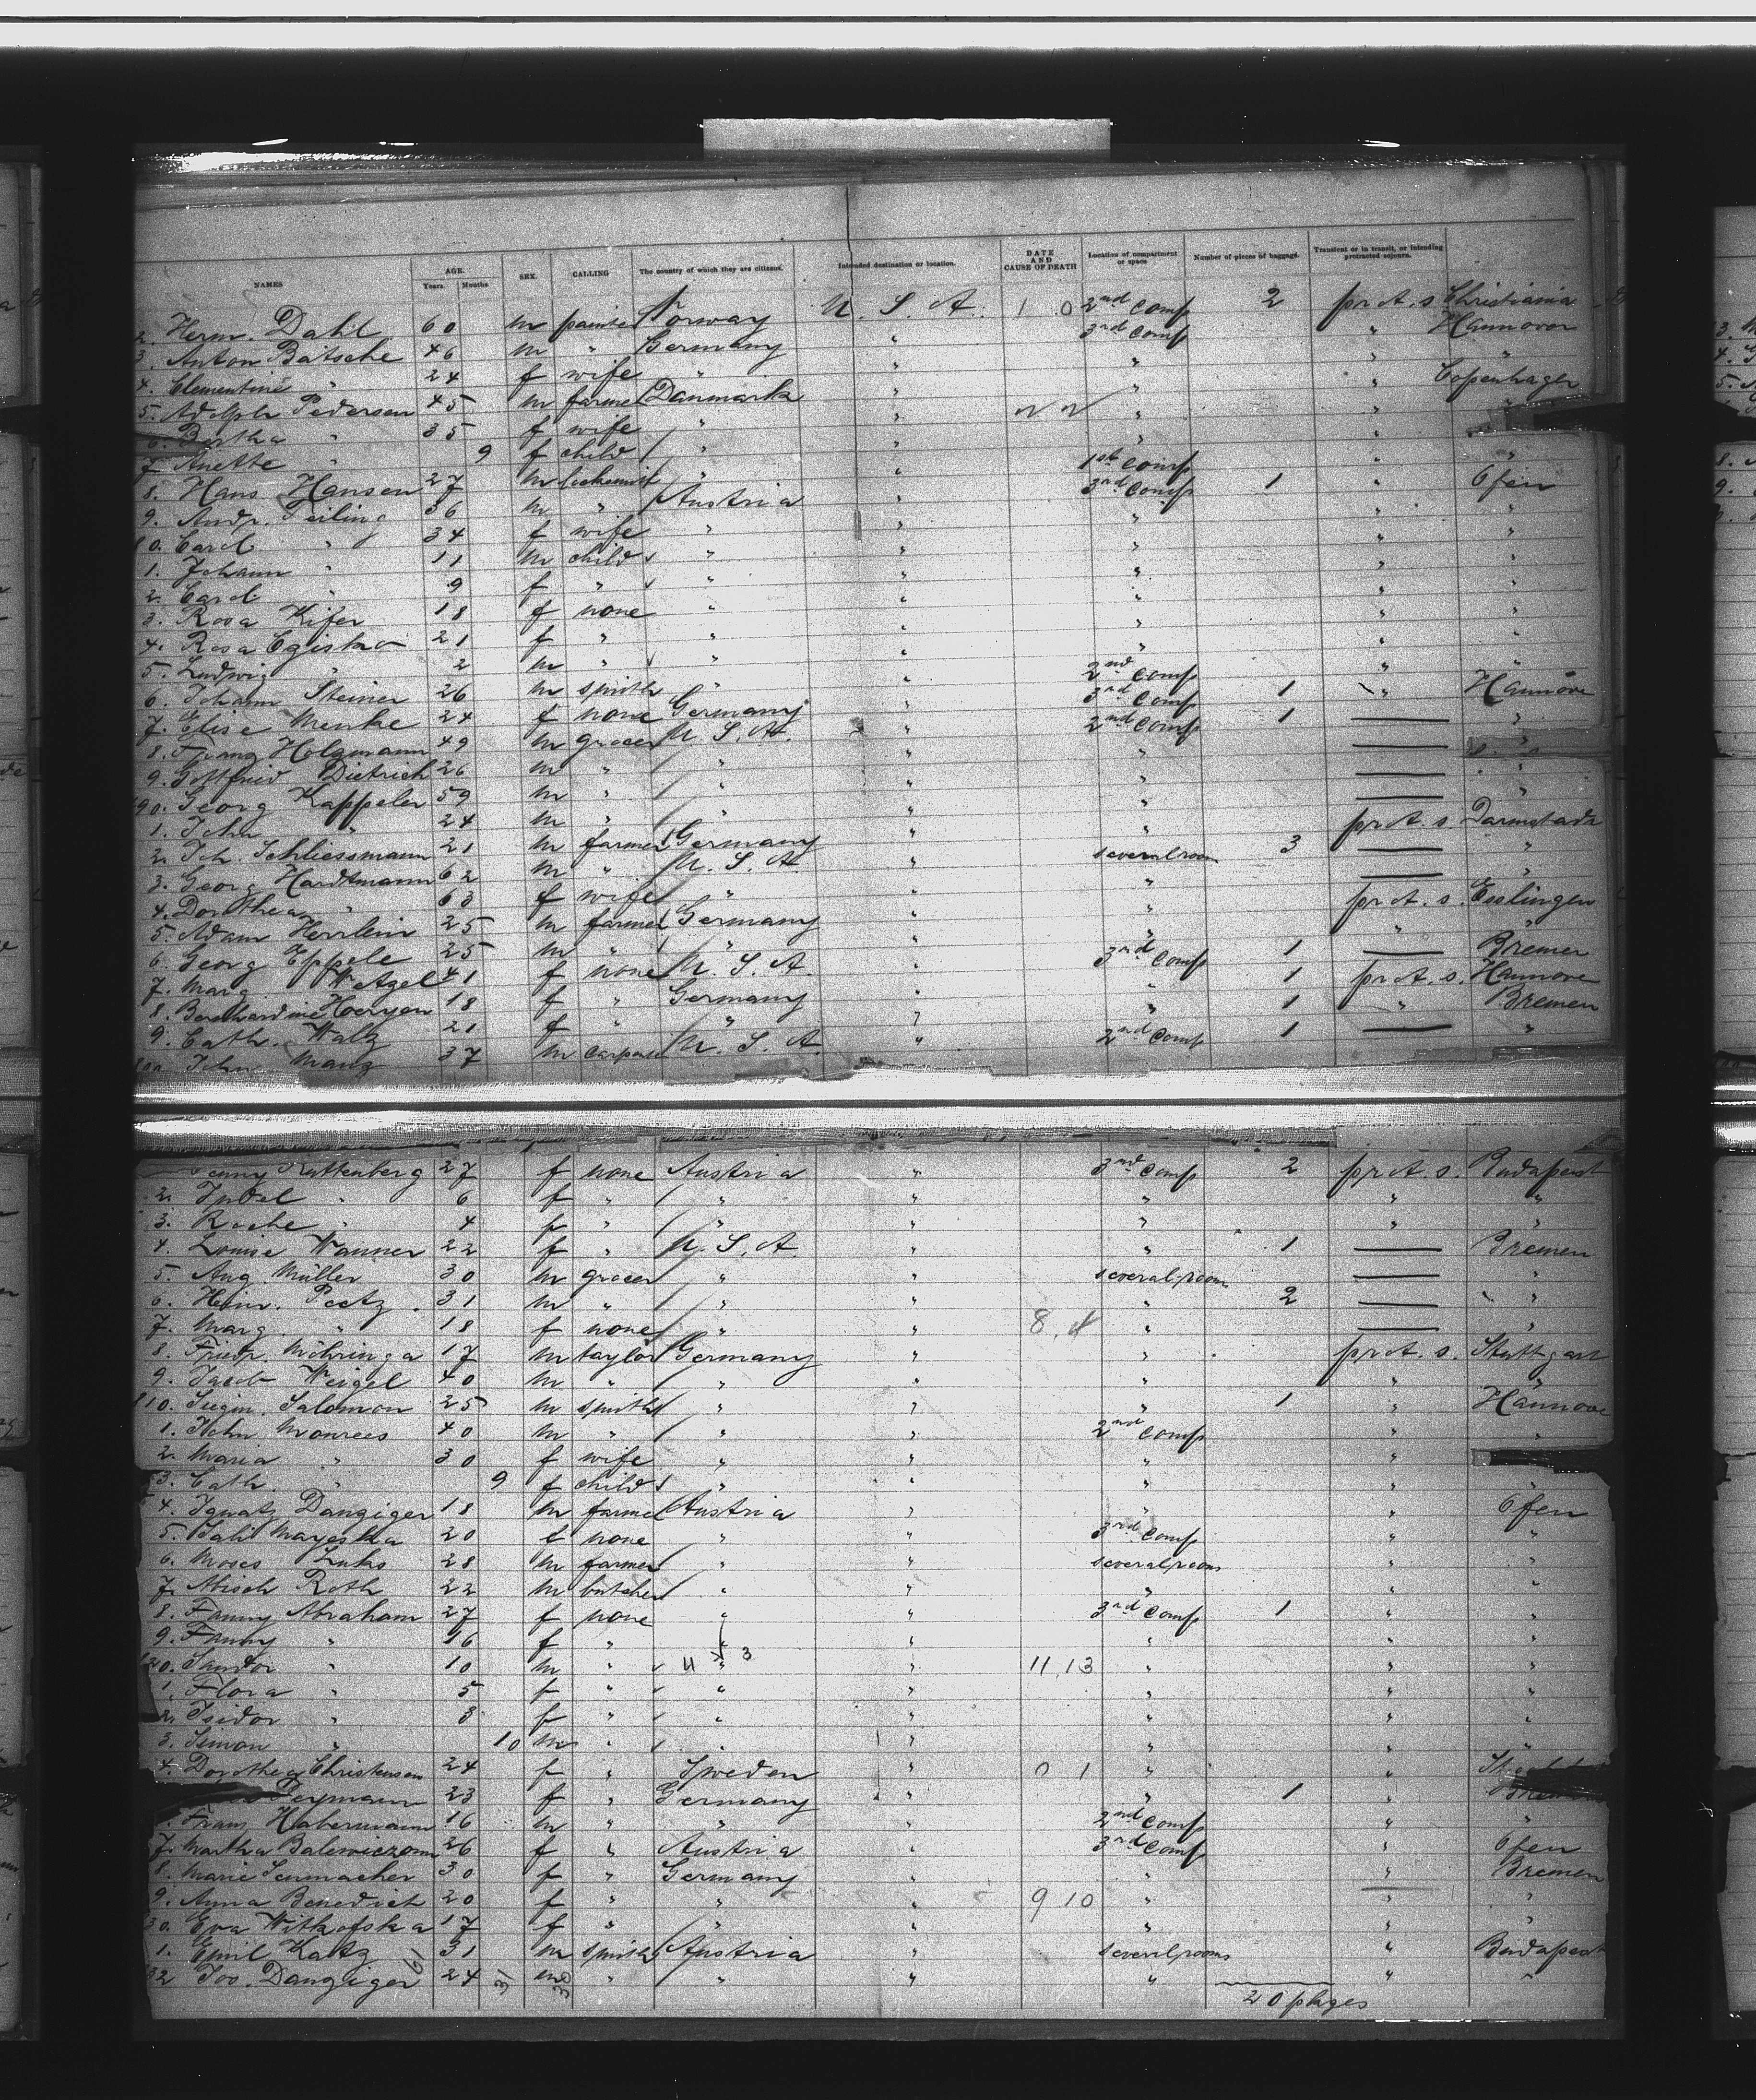 NAMES AGE. Years Months SEX. CALLING The country of which they are citizens. Intended destination or location. DATE AND CAUSE OF DEATH Location of compartment or space Number of pieces of baggage. Transient or in transit, or intending protracted sojourn.
2. Herm. Dahl 60 m painter Norway U. S. A. 1 0 2nd Comp 2 pr A. s. Christiania
3. Anton Bätsche 46 m " Germany " 3rd Comp " Hannover
4. Clementine " 24 f wife " " " " "
5. Adolph Pedersen 45 m farmer Danmark " " " Copenhagen
6. Bertha " 35 f wife " " " " "
7. Anette " 9 f child " " " "
8. Hans Hansen 27 m " " 1st Comp " "
9. Andr. Peiling 36 m " Austria " 3rd Comp 1 " Ofen
80. Carol " 34 f wife " " " " "
1. Johann " 11 m child " " " " "
2. Carol " 9 f " " " " " "
3. Rosa Kifer 18 f none " " " " "
4. Rosa 21 f " " " " " "
5. Ludwig " 2 m " " " " " "
6. Johann Steiner 26 m smith " " 2nd Comp " "
7. Elise Menke 24 f none Germany " 3rd Comp 1 " Hannove
8. Franz Holzmann 49 m grocer U. S. A. " 2nd Comp 1 — "
9. Gottfried Dietrich 26 m " " " " — "
90. Georg Kappeler 59 m " " " " — "
1. John " 24 m " " " " — "
2. Joh. Schliessmann 21 m farmer Germany " " pr A. s. Darmstadt
3. Georg Hardtmann 62 m " U. S. A. " several room 3 — "
4. Dorothea " 63 f wife " " " — "
5. Adam Herrlein 25 m farmer Germany " " pr A. s. Esslingen
6. Georg Eppele 25 m " " " " " "
7. Marg. Wetzel 41 f none U. S. A. " 3rd Comp 1 — Bremen
8. Bernhardine Hoeryen 18 f " Germany " " 1 pr A. s. Hannove
9. Cath. Waltz 21 f " " " " 1 " Bremen
100. John Manz 37 m Carpen U. S. A. " 2nd Comp 1 — "
Rattenberg 27 f none Austria " 3rd Comp 2 pr A. s. Budapest
2. Judel " 6 f " " " " " "
3. Roche " 4 f " " " " " "
4. Louise Wanner 22 f " U. S. A. " " 1 — Bremen
5. Aug. Müller 30 m grocer " " several room — "
6. Heinr. Peetz 31 m " " " " 2 — "
7. Marg. " 18 f none " " 8. " — "
8. Friedr. Möhringa 17 m taylor Germany " " pr A. s. Stuttgart
9. Jacob Weigel 40 m " " " " " "
110. Siegm. Salomon 25 m smith " " " 1 " Hannove
1. John Monrees 40 m " " " 2nd Comp " "
2. Maria " 30 f wife " " " " "
3. Cath. " 9 f child " " " " "
4. Ignatz Danziger 18 m farmer Austria " " " Ofen
5. 20 f none " " 3rd Comp " "
6. Moses Luks 28 m farmer " " several rooms " "
7. Abisch Roth 22 m butcher " " " " "
8. Fanny Abraham 27 f none " " 3rd Comp 1 " "
9. Fanny " 16 f " " " " " "
120. Sandor " 10 m " 4 3 " 11, 13 " " "
1. Flora " 5 f " " " " " "
2. Isidor " 3 f " " " " " "
3. Simon " 10 m " " " " " "
4. Dorothea Christensen 24 f " Sweden " 0 1 " "
Peymann 23 f " Germany " " 1 " Bremen
Franz Habermann 16 m " " " 2nd Comp " "
7. Martha 26 f " Austria " 3rd Comp " Ofen
8. Marie Senmacher 30 f " Germany " " " Bremen
9. Anna Benedict 20 f " " " 9 10 " " "
30. Eva Witkofska 17 f " " " " " "
1. Emil Katz 31 m smith Austria " several rooms " Budapest
32 Jos. Danziger 24 m " " " " " "
61 31 30
20 plages